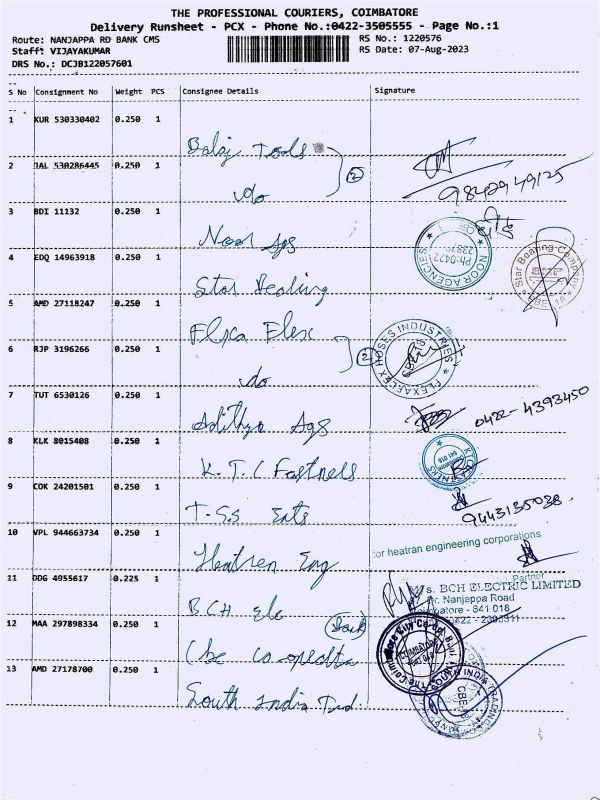 THE PROFESSIONAL COURIERS, COIMBATORE
Delivery Runsheet - PCX - Phone No.:0422-3505555 - Page No.:1
Route: NANJAPPA RD BANK CMS RS No.: 1220576
Stafft VIJAYAKUMAR RS Date: 07-Aug-2023
DRS No.: DCJB122057601
S No Consignment No Weight PCS Consignee Details Signature
1 KUR 530330402 0.250 1
Balaj Tools
2 JAL 530286445 0.250 1
do (2) 9842949125
3 BDI 11132 0.250 1
Noor Ags NOOR AGENCIES Ph:0422
4 EDQ 14963918 0.250 1
Star Bearing Star Bearing Company CBE-18
5 AMD 27118247 0.250 1
Flexa Flex FLEXAFLEX HOSES INDUSTRIES
6 RJP 3196266 0.250 1
do (2)
7 TUT 6530126 0.250 1
Adithya Ags 0422-4393450
8 KLK 8015408 0.250 1
K.T.C Fastners
9 COK 24201501 0.250 1
T.S.S Ents 9443135038
10 VPL 944663734 0.250 1
Heatren Eng for heatran engineering corporations
Partner
11 DDG 4955617 0.225 1
BCH Ele s. BCH ELECTRIC LIMITED
Dr. Nanjappa Road
Coimbatore - 641 018
12 MAA 297898334 0.250 1
Cbe co-operative (Bank)
13 AMD 27178700 0.250 1
South India Trd. SOUTH INDIA TRADING CBE-18